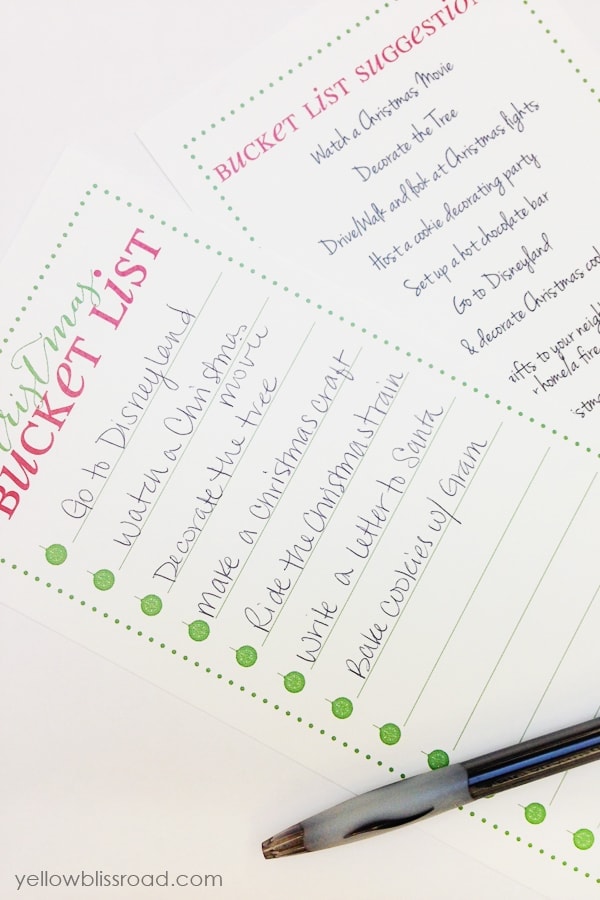 BUCKET LIST SUGGESTION
Watch a Christmas Movie
Decorate the Tree
Drive/Walk and look at Christmas lights
Host a cookie decorating party
Set up a hot chocolate bar
Go to Disneyland
& decorate Christmas
to your
BUCKET LIST
Go to Disneyland
Watch a Christmas
movie
Decorate the tree
make a Christmas craft
Ride the Christmas train
Write a letter to Santa
Bake cookies w/ Gram
yellowblissroad.com